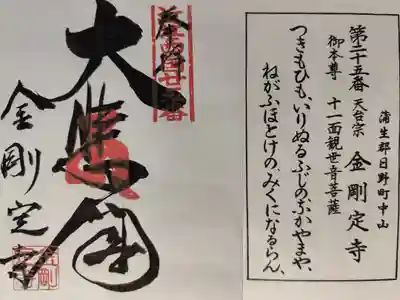 蒲生郡日野町中山
第二十五番 天台宗 金剛定寺
御本尊 十一面観世音菩薩
つきもひも、いりぬるふじのなかやまや、
ねがふほとけのみくになるらん、
奉拝
大悲閣
金剛定寺